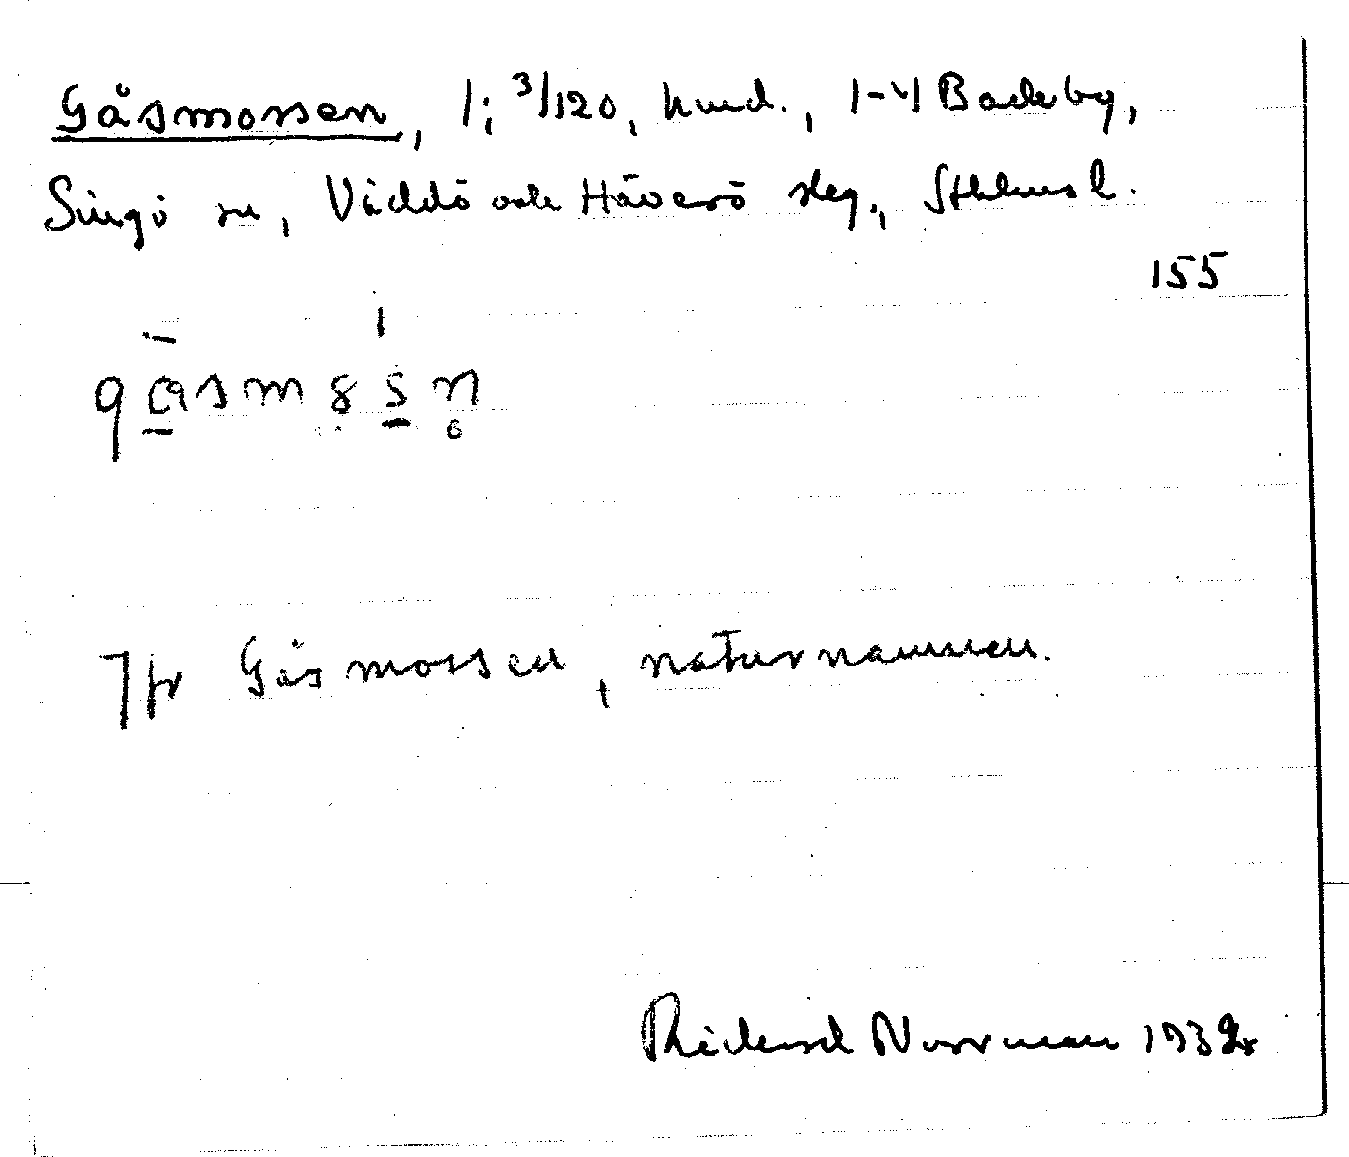 Gåsmossen, 1; 3/120, hmd., 1-4 Backby,
Singö sn, Väddö och Häverö skg., Sthlms l.
155
gåsmɔsn̥
Jfr Gåsmossen, naturnamnen.
Rickard Norrman 1932